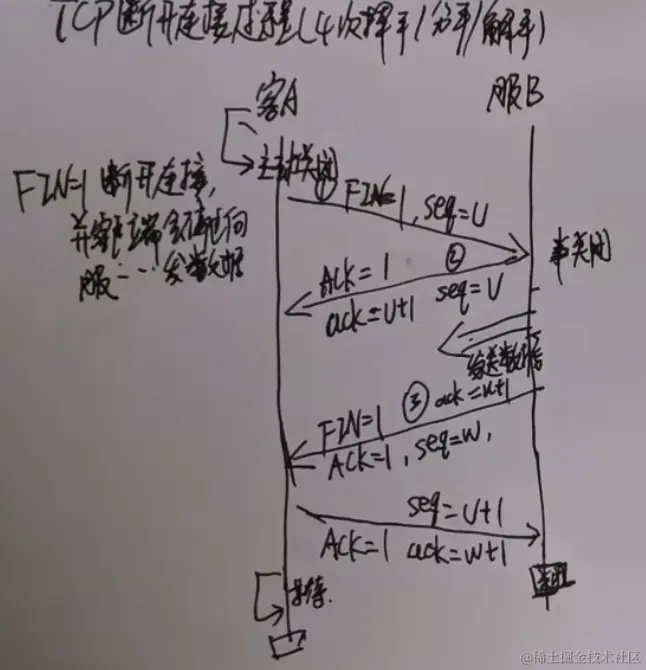 TCP断开连接过程(4次挥手/分手/解手)
客A
服B
主动关闭
FIN=1 断开连接,
并客户端会停止向
服……发数据
① FIN=1, seq=U
②
ACK=1
seq=V
ack=U+1
半关闭
发送数据
③ ack=u+1
FIN=1
ACK=1, seq=W,
seq=U+1
ACK=1 ack=W+1
等待.
关闭
@稀土掘金技术社区